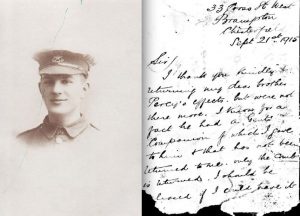 33 Cross St West
Brampton
Chesterfield
Sept 21st 1916
Sir,
I thank you kindly for
returning my dear brother
Percy's effects, but were not
there more. I know for a
fact he had a Gents
Companion of which I gave
to him & that has not been
returned to me. only the Comb
is returned. I should be
if I could have it